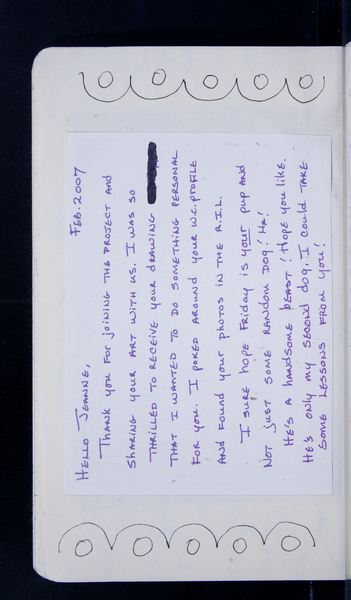 Feb. 2007
Hello Jeanne,
Thank you for joining the project and
sharing your art with us. I was so
thrilled to receive your drawing
that I wanted to do something personal
for you. I poked around your W.C. profile
and found your photos in the R.I.L.
I sure hope Friday is your pup and
not just some random dog! Ha!
He's a handsome beast! Hope you like.
He's only my second dog. I could take
some lessons from you!